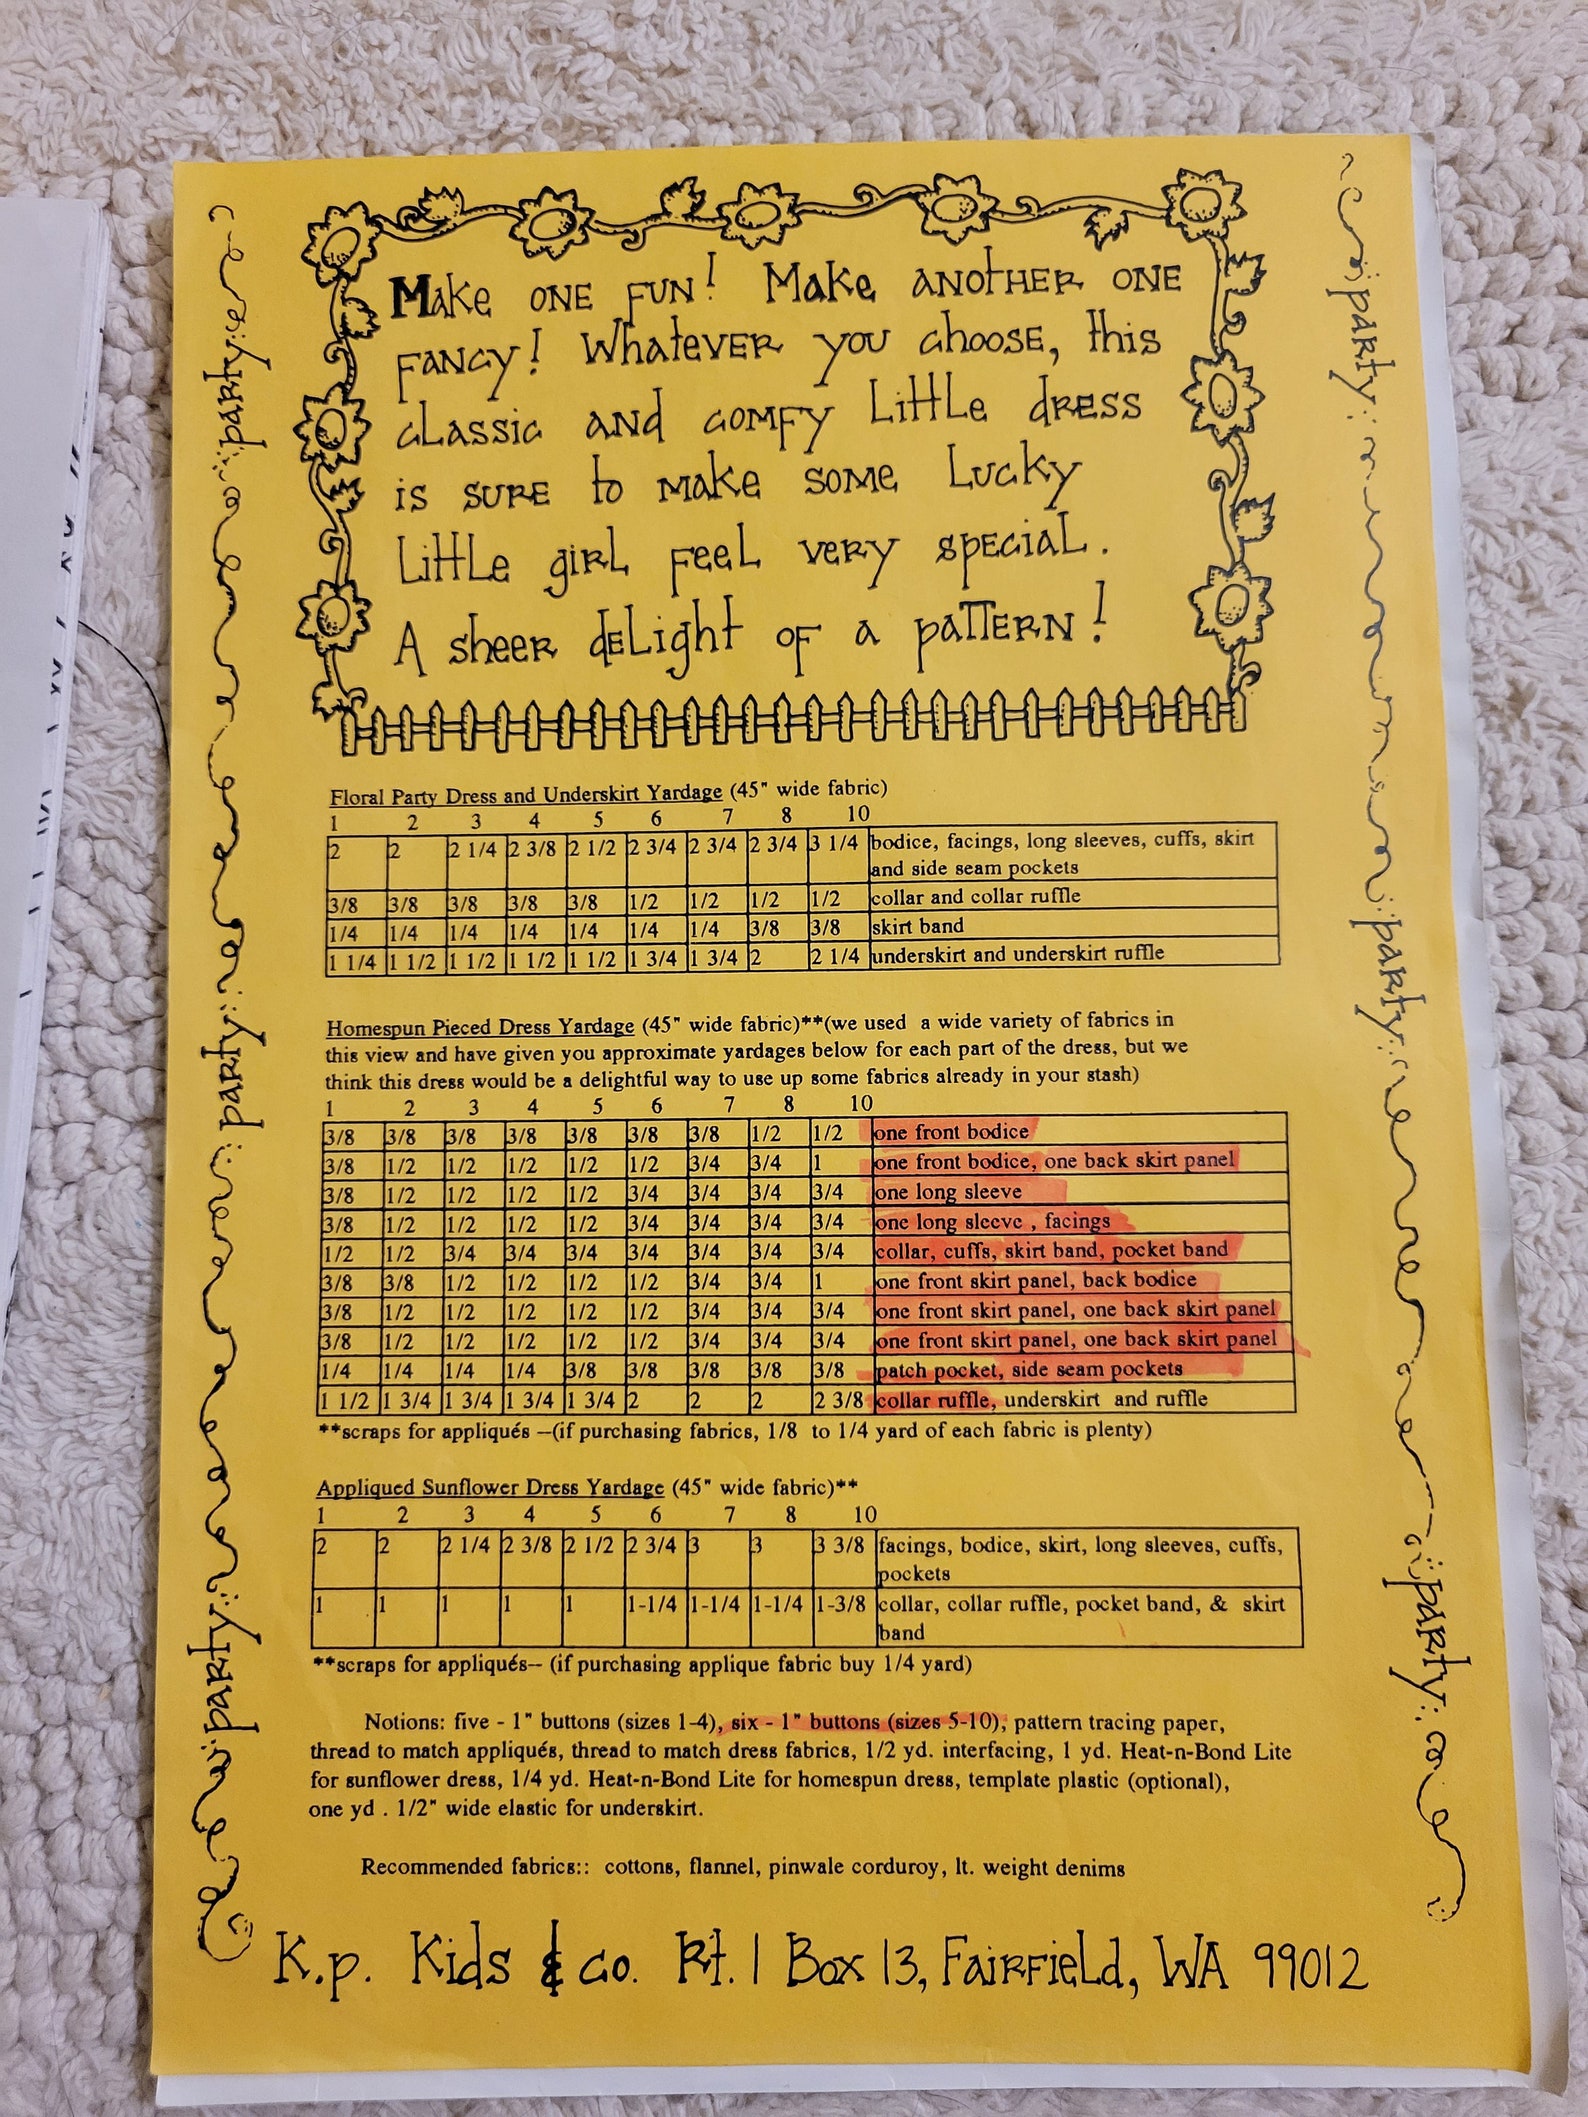 Make one fun! Make another one
fancy! Whatever you choose, this
classic and comfy little dress
is sure to make some lucky
little girl feel very special.
A sheer delight of a pattern!
party
party
party
party
party
party
Floral Party Dress and Underskirt Yardage (45" wide fabric)
1 2 3 4 5 6 7 8 10
2 2 2 1/4 2 3/8 2 1/2 2 3/4 2 3/4 2 3/4 3 1/4 bodice, facings, long sleeves, cuffs, skirt
and side seam pockets
3/8 3/8 3/8 3/8 3/8 1/2 1/2 1/2 1/2 collar and collar ruffle
1/4 1/4 1/4 1/4 1/4 1/4 1/4 3/8 3/8 skirt band
1 1/4 1 1/2 1 1/2 1 1/2 1 1/2 1 3/4 1 3/4 2 2 1/4 underskirt and underskirt ruffle
Homespun Pieced Dress Yardage (45" wide fabric)**(we used a wide variety of fabrics in
this view and have given you approximate yardages below for each part of the dress, but we
think this dress would be a delightful way to use up some fabrics already in your stash)
1 2 3 4 5 6 7 8 10
3/8 3/8 3/8 3/8 3/8 3/8 3/8 1/2 1/2 one front bodice
3/8 1/2 1/2 1/2 1/2 1/2 3/4 3/4 1 one front bodice, one back skirt panel
3/8 1/2 1/2 1/2 1/2 3/4 3/4 3/4 3/4 one long sleeve
3/8 1/2 1/2 1/2 1/2 3/4 3/4 3/4 3/4 one long sleeve , facings
1/2 1/2 3/4 3/4 3/4 3/4 3/4 3/4 3/4 collar, cuffs, skirt band, pocket band
3/8 3/8 1/2 1/2 1/2 1/2 3/4 3/4 1 one front skirt panel, back bodice
3/8 1/2 1/2 1/2 1/2 1/2 3/4 3/4 3/4 one front skirt panel, one back skirt panel
3/8 1/2 1/2 1/2 1/2 1/2 3/4 3/4 3/4 one front skirt panel, one back skirt panel
1/4 1/4 1/4 1/4 3/8 3/8 3/8 3/8 3/8 patch pocket, side seam pockets
1 1/2 1 3/4 1 3/4 1 3/4 1 3/4 2 2 2 2 3/8 collar ruffle, underskirt and ruffle
**scraps for appliqués --(if purchasing fabrics, 1/8 to 1/4 yard of each fabric is plenty)
Appliqued Sunflower Dress Yardage (45" wide fabric)**
1 2 3 4 5 6 7 8 10
2 2 2 1/4 2 3/8 2 1/2 2 3/4 3 3 3 3/8 facings, bodice, skirt, long sleeves, cuffs,
pockets
1 1 1 1 1 1-1/4 1-1/4 1-1/4 1-3/8 collar, collar ruffle, pocket band, & skirt
band
**scraps for appliqués-- (if purchasing applique fabric buy 1/4 yard)
Notions: five - 1" buttons (sizes 1-4), six - 1" buttons (sizes 5-10), pattern tracing paper,
thread to match appliqués, thread to match dress fabrics, 1/2 yd. interfacing, 1 yd. Heat-n-Bond Lite
for sunflower dress, 1/4 yd. Heat-n-Bond Lite for homespun dress, template plastic (optional),
one yd . 1/2" wide elastic for underskirt.
Recommended fabrics:: cottons, flannel, pinwale corduroy, lt. weight denims
K.p. Kids & co. Rt. 1 Box 13, Fairfield, WA 99012